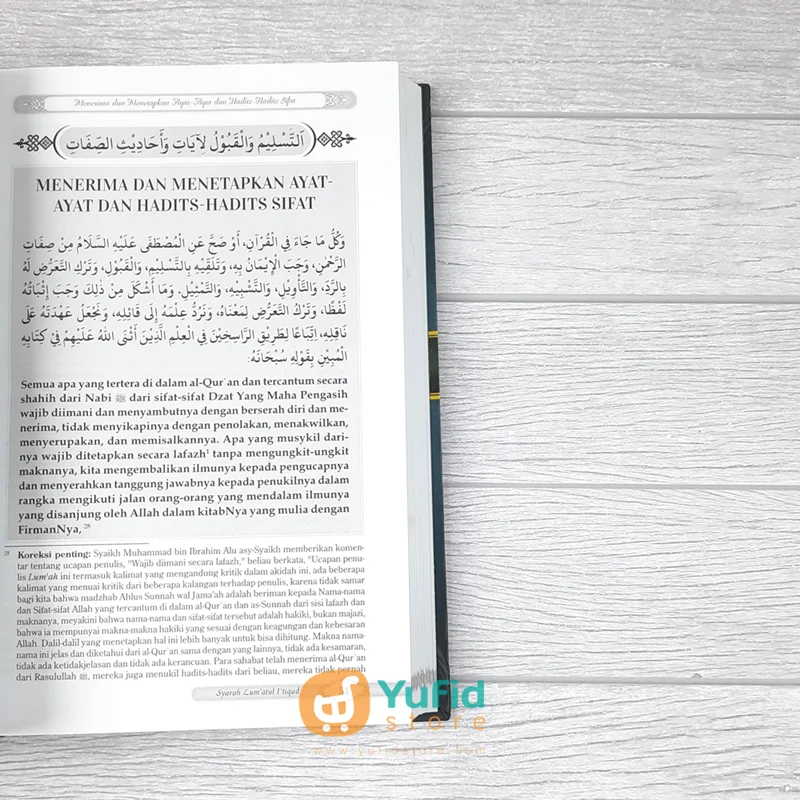 Menerima dan Menetapkan Ayat-Ayat dan Hadits-Hadits Sifat
اَلتَّسْلِيْمُ وَالْقَبُوْلُ لِآيَاتِ وَأَحَادِيْثِ الصِّفَاتِ
MENERIMA DAN MENETAPKAN AYAT-
AYAT DAN HADITS-HADITS SIFAT
وَكُلُّ مَا جَاءَ فِي الْقُرْآنِ، أَوْ صَحَّ عَنِ الْمُصْطَفَى عَلَيْهِ السَّلَامُ مِنْ صِفَاتِ
الرَّحْمٰنِ، وَجَبَ الْإِيْمَانُ بِهِ، وَتَلَقِّيْهِ بِالتَّسْلِيْمِ، وَالْقَبُوْلِ، وَتَرْكِ التَّعَرُّضِ لَهُ
بِالرَّدِّ، وَالتَّأْوِيْلِ، وَالتَّشْبِيْهِ، وَالتَّمْثِيْلِ. وَمَا أَشْكَلَ مِنْ ذٰلِكَ وَجَبَ إِثْبَاتُهُ
لَفْظًا، وَتَرْكُ التَّعَرُّضِ لِمَعْنَاهُ، وَنَرُدُّ عِلْمَهُ إِلَى قَائِلِهِ، وَنَجْعَلُ عُهْدَتَهُ عَلَى
نَاقِلِهِ، اِتِّبَاعًا لِطَرِيْقِ الرَّاسِخِيْنَ فِي الْعِلْمِ الَّذِيْنَ أَثْنَى اللهُ عَلَيْهِمْ فِيْ كِتَابِهِ
الْمُبِيْنِ بِقَوْلِهِ سُبْحَانَهُ:
Semua apa yang tertera di dalam al-Qur`an dan tercantum secara
shahih dari Nabi ﷺ dari sifat-sifat Dzat Yang Maha Pengasih
wajib diimani dan menyambutnya dengan berserah diri dan me-
nerima, tidak menyikapinya dengan penolakan, menakwilkan,
menyerupakan, dan memisalkannya. Apa yang musykil dari-
nya wajib ditetapkan secara lafazh¹ tanpa mengungkit-ungkit
maknanya, kita mengembalikan ilmunya kepada pengucapnya
dan menyerahkan tanggung jawabnya kepada penukilnya dalam
rangka mengikuti jalan orang-orang yang mendalam ilmunya
yang disanjung oleh Allah dalam kitabNya yang mulia dengan
FirmanNya, ²⁸
²⁸ Koreksi penting: Syaikh Muhammad bin Ibrahim Alu asy-Syaikh memberikan komen-
tar tentang ucapan penulis, "Wajib diimani secara lafazh," beliau berkata, "Ucapan penu-
lis Lum'ah ini termasuk kalimat yang mengandung kritik dalam akidah ini, ada beberapa
kalimat yang menuai kritik dari beberapa kalangan terhadap penulis, karena tidak samar
bagi kita bahwa madzhab Ahlus Sunnah wal Jama'ah adalah beriman kepada Nama-nama
dan Sifat-sifat Allah yang tercantum di dalam al-Qur`an dan as-Sunnah dari sisi lafazh dan
maknanya, meyakini bahwa nama-nama dan sifat-sifat tersebut adalah hakiki, bukan majazi,
bahwa ia mempunyai makna-makna hakiki yang sesuai dengan keagungan dan kebesaran
Allah. Dalil-dalil yang menetapkan hal ini lebih banyak untuk bisa dihitung. Makna nama-
nama ini jelas dan diketahui dari al-Qur`an sama dengan yang lainnya, tidak ada kesamaran,
tidak ada ketidakjelasan dan tidak ada kerancuan. Para sahabat telah menerima al-Qur`an
dari Rasulullah ﷺ, mereka juga menukil hadits-hadits dari beliau, mereka tidak pernah
Syarah Lum'atul I'tiqad
Yufid
store
www.yufidstore.com